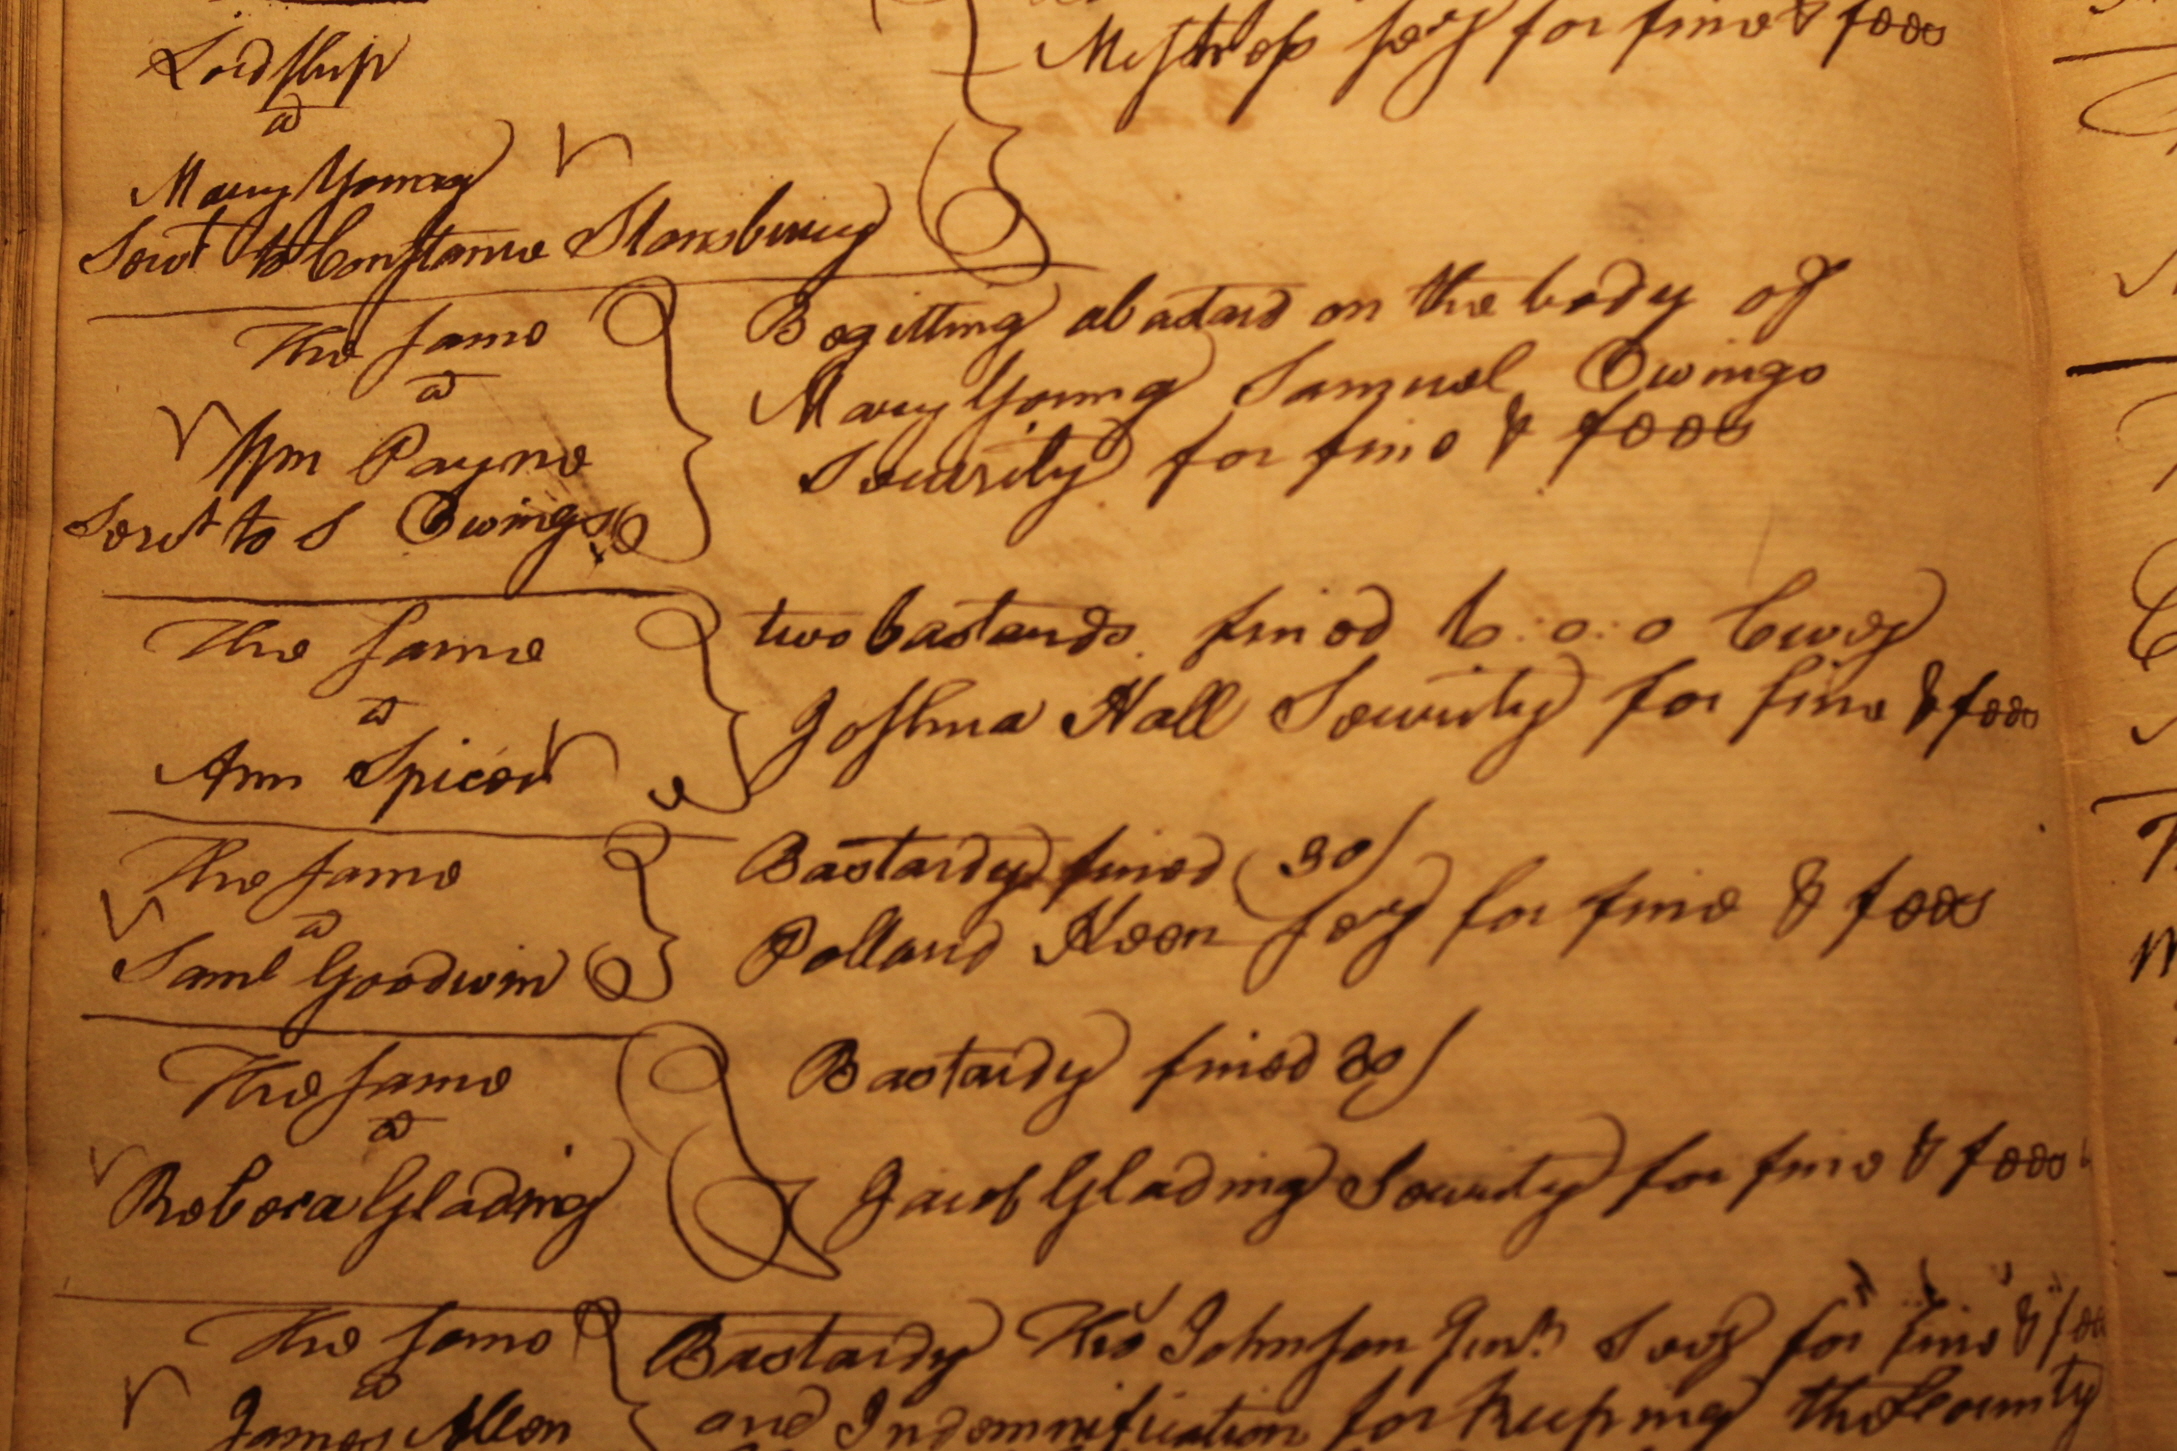 Lordship
a
Mary Young
Servt to Constance Stansbury
Secy for fine & fees
The Same
a
Wm Payne
Servt to S Owings
Begitting a bastard on the body of
Mary Young Samuel Owings
Security for fine & fees
The Same
a
Ann Spicer
two bastards. fined 6:0:0 Curcy
Joshua Hall Security for fine & fees
The Same
a
Saml Goodwin
Bastardy fined 30/
Pollard Keen Secy for fine & fees
The Same
a
Rebecca Glading
Bastardy fined 30/
Jacob Glading Security for fine & fees
The Same
a
James Allen
Bastardy Thos Johnson Junr. Secy for fine & fees
and Indemnification for keeping the County